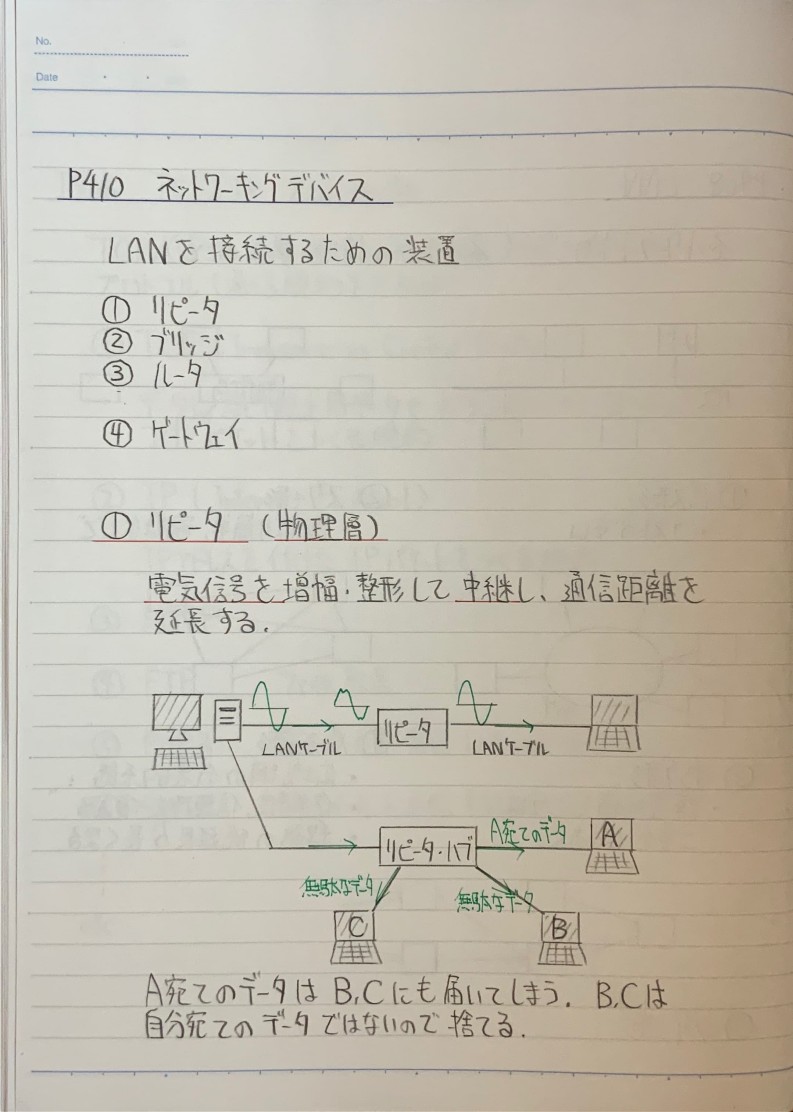 No.
Date
P410 ネットワーキングデバイス
LANを接続するための装置
① リピータ
② ブリッジ
③ ルータ
④ ゲートウェイ
① リピータ (物理層)
電気信号を増幅・整形して中継し、通信距離を
延長する.
リピータ
LANケーブル
LANケーブル
A宛てのデータ
A
リピータ・ハブ
無駄なデータ
無駄なデータ
C
B
A宛てのデータは B,Cにも届いてしまう. B,Cは
自分宛てのデータではないので捨てる.